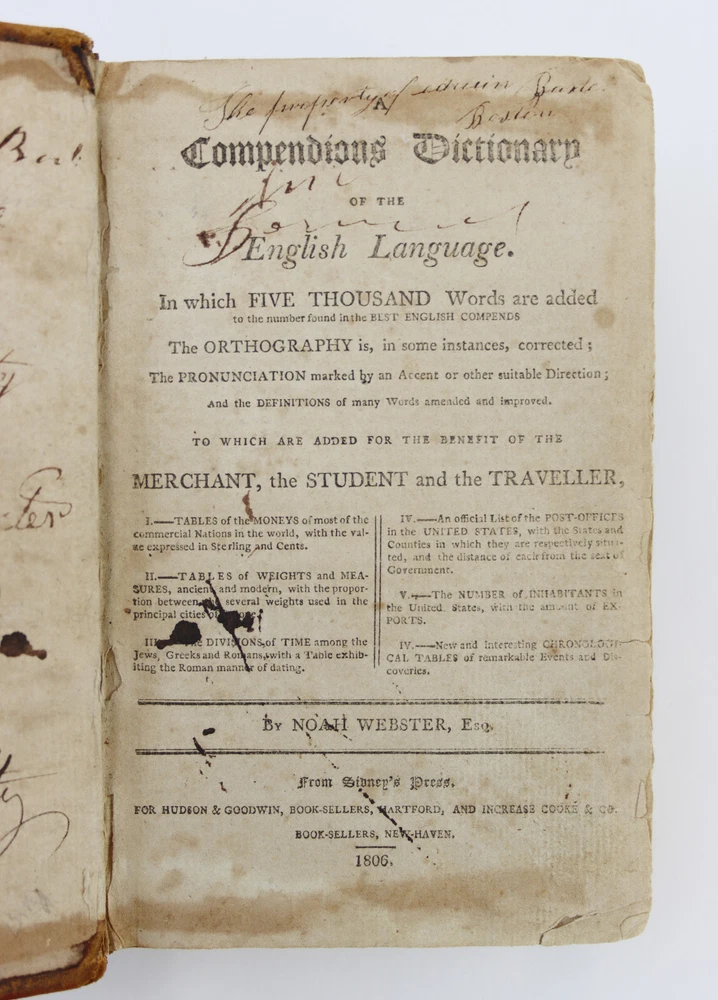 The property of edwin
Boston
A
Compendious Dictionary
OF THE
English Language.
In which FIVE THOUSAND Words are added
to the number found in the BEST ENGLISH COMPENDS
The ORTHOGRAPHY is, in some instances, corrected;
The PRONUNCIATION marked by an Accent or other suitable Direction;
And the DEFINITIONS of many Words amended and improved.
TO WHICH ARE ADDED FOR THE BENEFIT OF THE
MERCHANT, the STUDENT and the TRAVELLER,
I.—TABLES of the MONEYS of most of the
commercial Nations in the world, with the val-
ue expressed in Sterling and Cents.
II.—TABLES of WEIGHTS and MEA-
SURES, ancient and modern, with the propor-
tion between the several weights used in the
principal cities of
III.—The DIVISIONS of TIME among the
Jews, Greeks and Romans, with a Table exhib-
iting the Roman manner of dating.
IV.—An official List of the POST-OFFICES
in the UNITED STATES, with the States and
Counties in which they are respectively situa-
ted, and the distance of each from the seat of
Government.
V.—The NUMBER of INHABITANTS in
the United States, with the amount of EX-
PORTS.
IV.—New and interesting CHRONOLOGI-
CAL TABLES of remarkable Events and Dis-
coveries.
By NOAH WEBSTER, Esq.
From Sidney's Press.
FOR HUDSON & GOODWIN, BOOK-SELLERS, HARTFORD, AND INCREASE COOKE & CO.
BOOK-SELLERS, NEW-HAVEN.
1806.